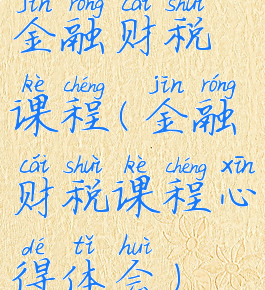 jīn róng cái shuì
金融财税
kè chéng jīn róng
课程(金融
cái shuì kè chéng xīn
财税课程心
dé tǐ huì
得体会)